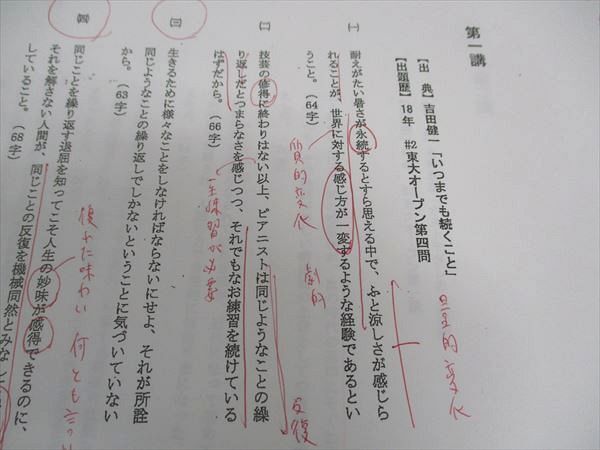 第一講
【出 典】吉田健一「いつまでも続くこと」
【出題歴】18年 #2東大オープン第四問
量的変化
(一)
耐えがたい暑さが永続するとすら思える中で、ふと涼しさが感じら
れることが、世界に対する感じ方が一変するような経験であるとい
うこと。(64字)
質的変化
劇的
反復
(二)
技芸の修得に終わりはない以上、ピアニストは同じようなことの繰
り返しだとつまらなさを感じつつ、それでもなお練習を続けている
はずだから。(66字)
一生練習が必要
(三)
生きるために様々なことをしなければならないにせよ、それが所詮
同じようなことの繰り返しでしかないということに気づいていない
から。(63字)
(四)
同じことを繰り返す退屈を知ってこそ人生の妙味が感得できるのに、
それを解さない人間が、同じことの反復を機械同然とみなし
していること。(68字)
優れた味わい 何とも言